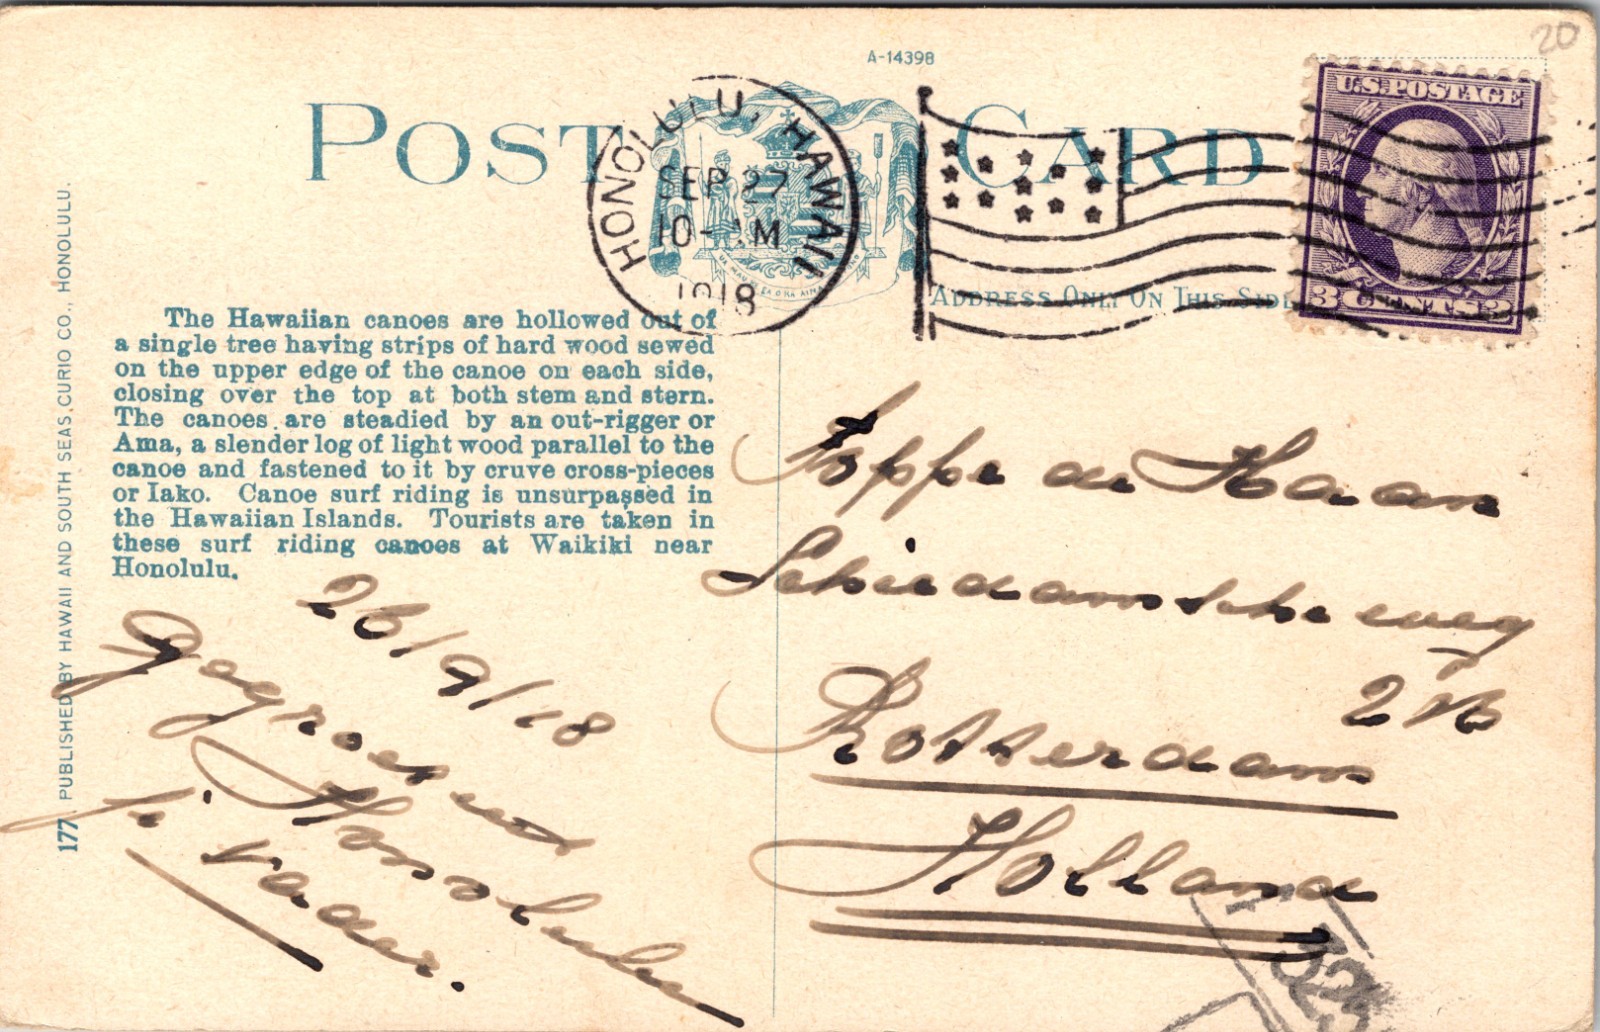 20
A-14398
POST CARD
HONOLULU, HAWAII
SEP 27
10-AM
1918
U.S. POSTAGE
3 CENTS 3
ADDRESS ONLY ON THIS SIDE
The Hawaiian canoes are hollowed out of
a single tree having strips of hard wood sewed
on the upper edge of the canoe on each side,
closing over the top at both stem and stern.
The canoes are steadied by an out-rigger or
Ama, a slender log of light wood parallel to the
canoe and fastened to it by cruve cross-pieces
or Iako. Canoe surf riding is unsurpassed in
the Hawaiian Islands. Tourists are taken in
these surf riding canoes at Waikiki near
Honolulu.
177 PUBLISHED BY HAWAII AND SOUTH SEAS CURIO CO., HONOLULU.
26/9/18
Gegroet uit
Honolulu
je vader.
Joppe de Haan
Schiedamsche weg
Rotterdam
Holland